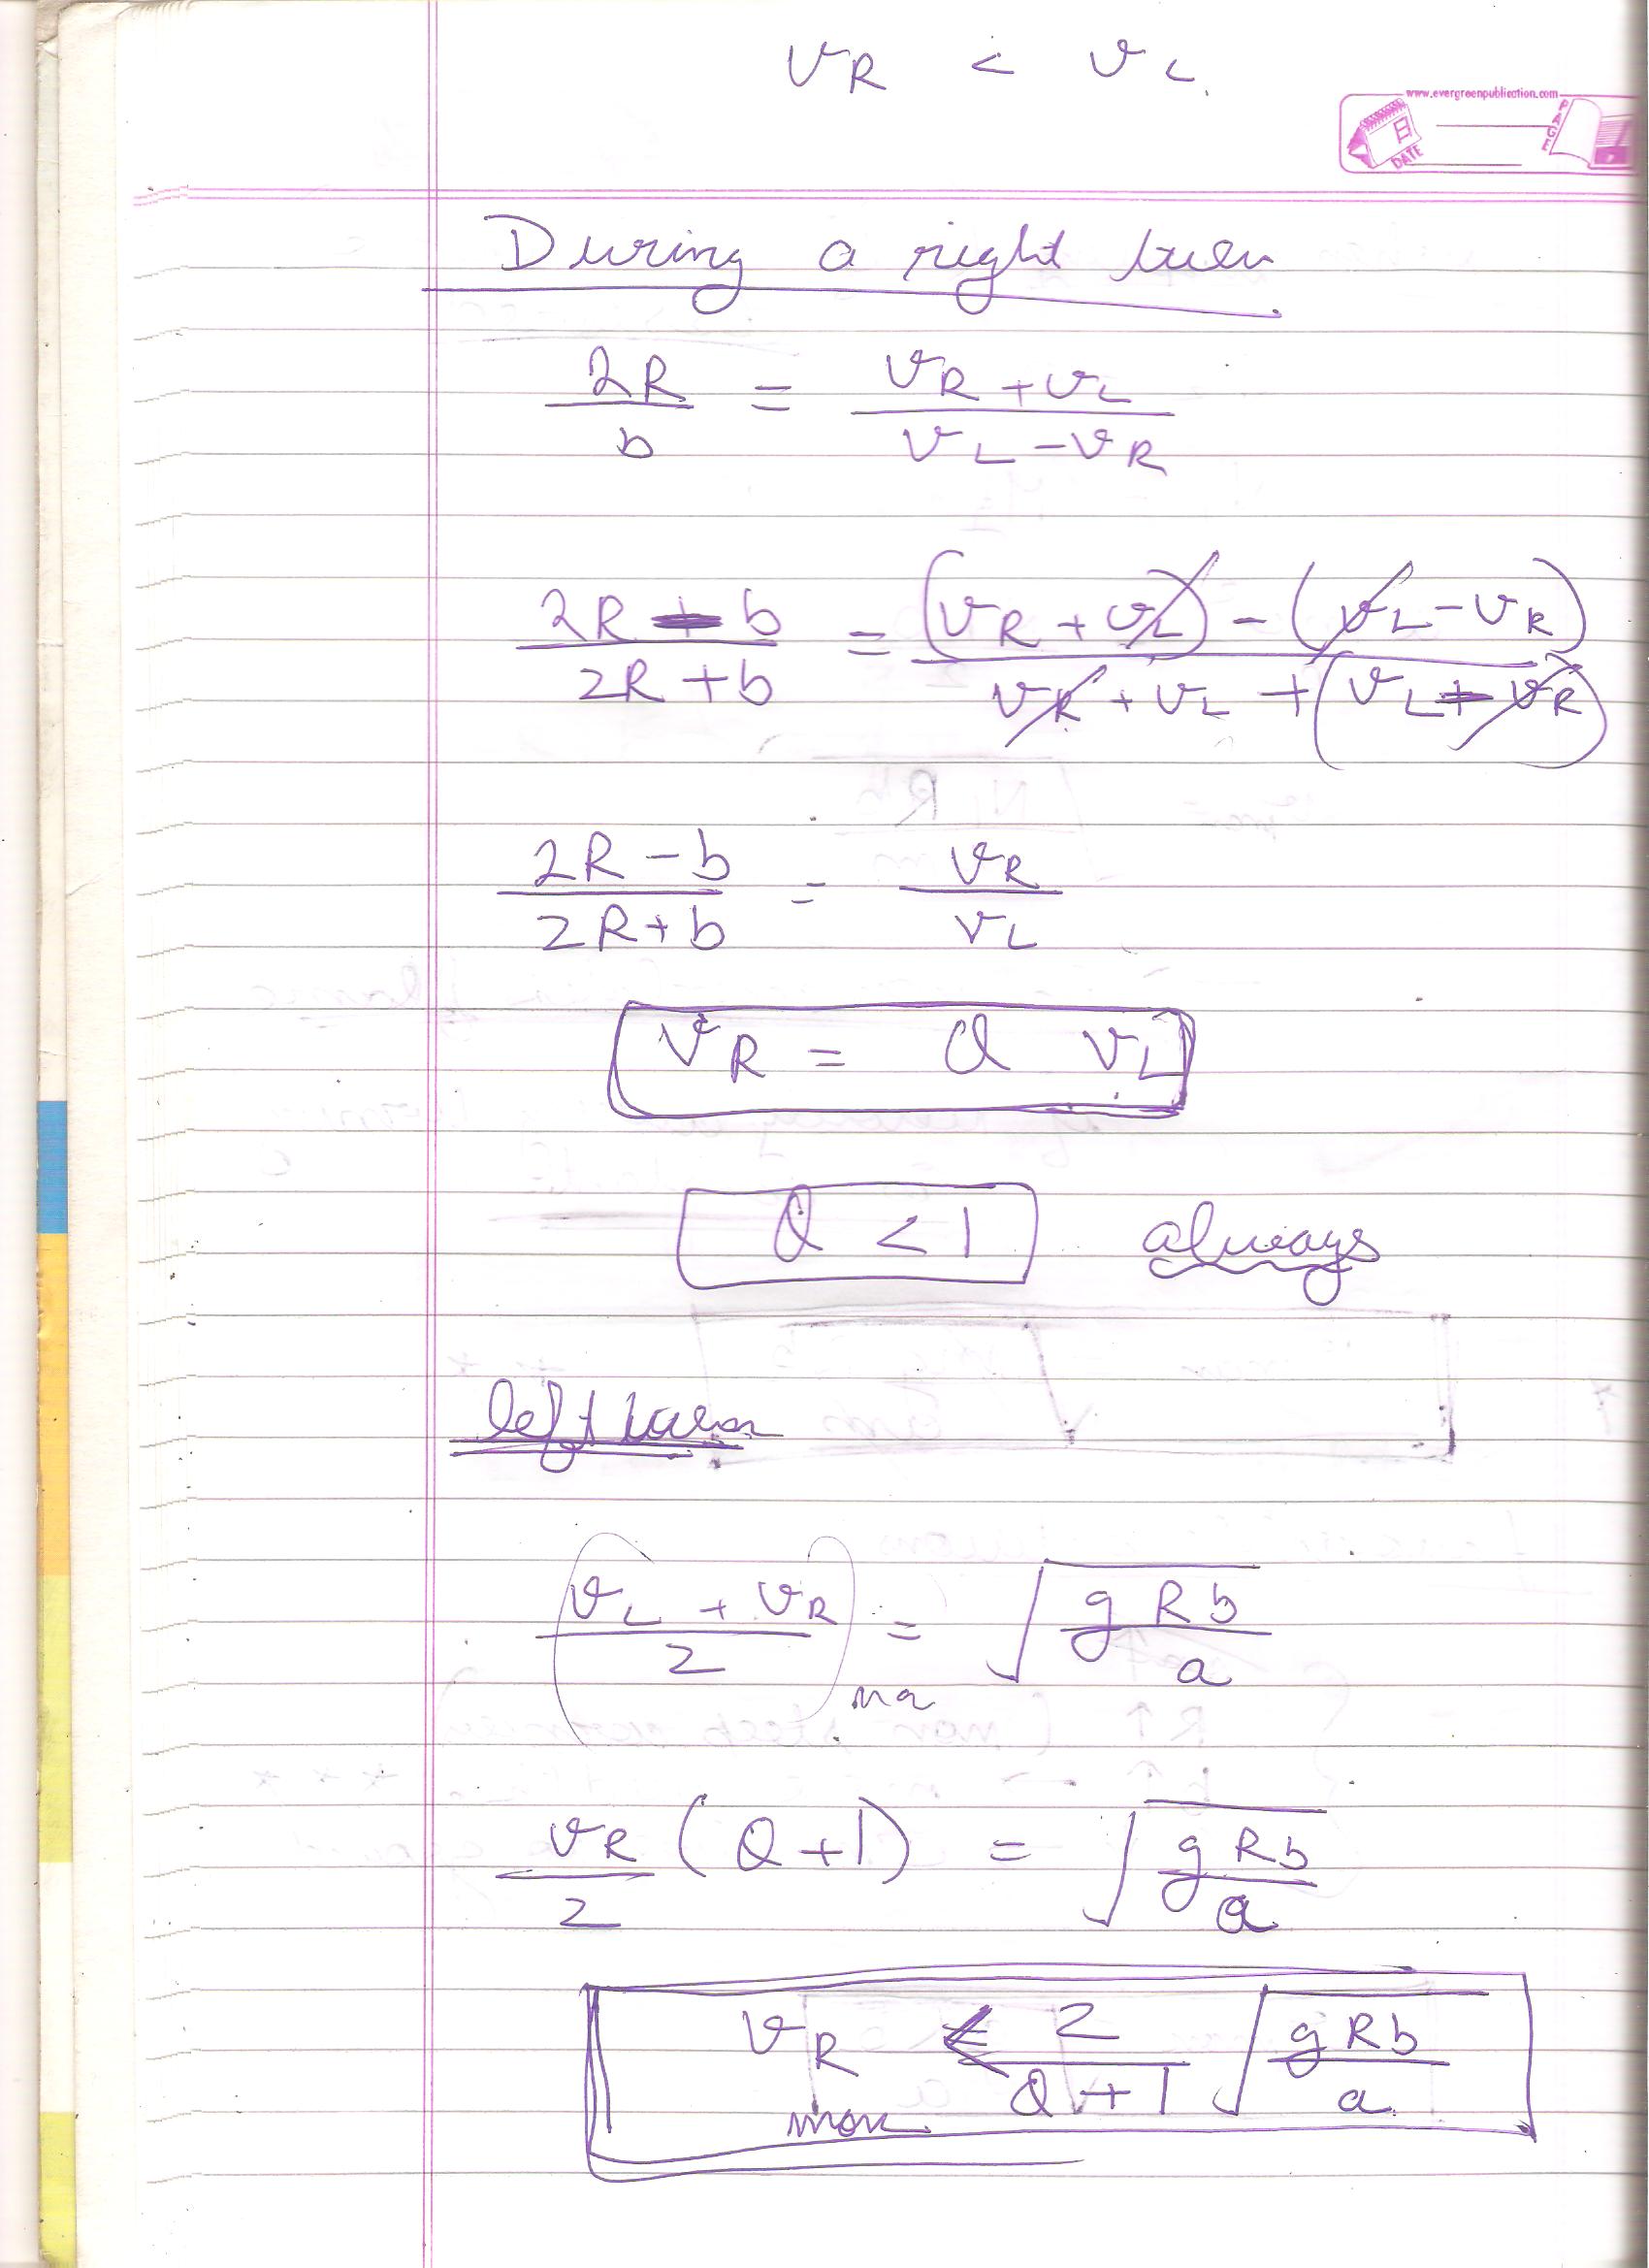 v_R < v_L
www.evergreenpublication.com
DATE
PAGE
During a right turn
2R / b = (v_R + v_L) / (v_L - v_R)
(2R - b) / (2R + b) = ((v_R + v_L) - (v_L - v_R)) / (v_R + v_L + (v_L - v_R))
(2R - b) / (2R + b) = v_R / v_L
v_R = Q v_L
Q < 1 always
left turn
((v_L + v_R) / 2)_ma = √(g R b / a)
v_R / 2 (Q + 1) = √(g R b / a)
v_R max ≤ 2 / (Q + 1) √(g R b / a)